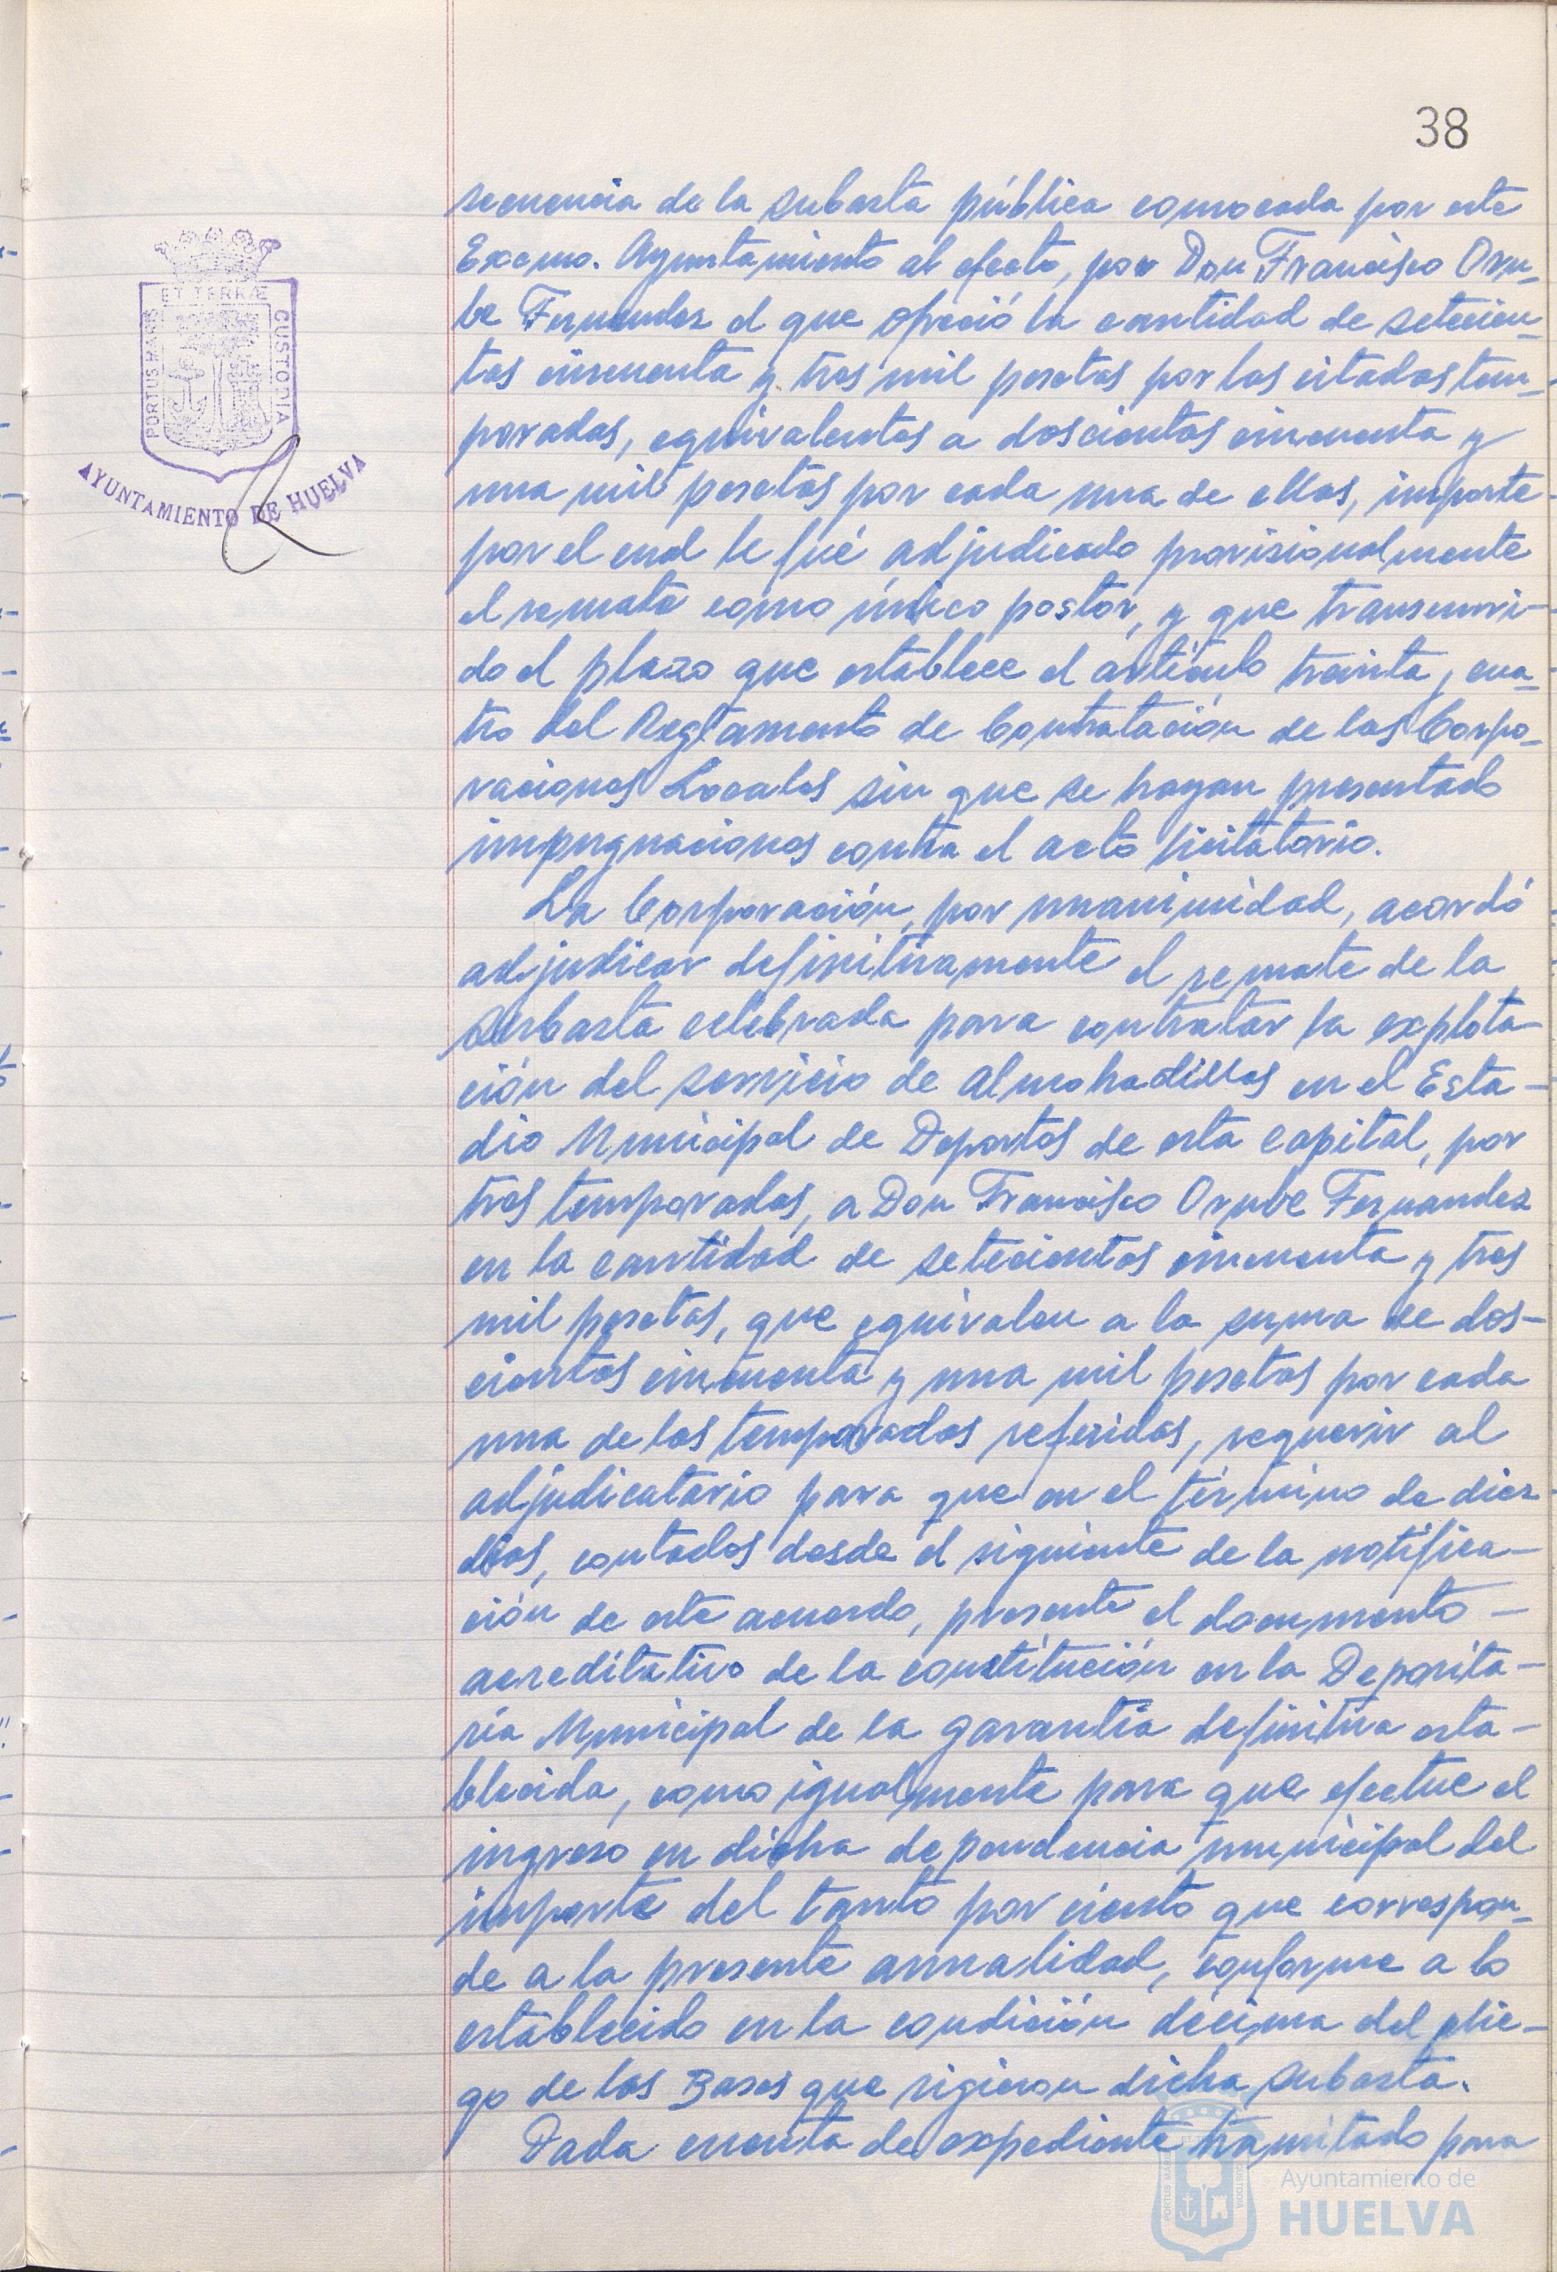 38
ET TERRÆ
PORTUS MARIS
CUSTODIA
AYUNTAMIENTO DE HUELVA
secuencia de la subasta pública convocada por este
Excmo. Ayuntamiento al efecto, por Don Francisco Oru-
be Fernandez el que ofreció la cantidad de setecien-
tas cincuenta y tres mil pesetas por las citadas tem-
poradas, equivalentes a doscientas cincuenta y
una mil pesetas por cada una de ellas, importe
por el cual le fué adjudicado provisionalmente
el remate como único postor, y que transcurri-
do el plazo que establece el artículo treinta y cua-
tro del Reglamento de Contratación de las Corpo-
raciones Locales sin que se hayan presentado
impugnaciones contra el acto licitatorio.
La Corporación, por unanimidad, acordó
adjudicar definitivamente el remate de la
subasta celebrada para contratar la explota-
ción del servicio de almohadillas en el Esta-
dio Municipal de Deportes de esta capital, por
tres temporadas, a Don Francisco Orube Fernandez
en la cantidad de setecientas cincuenta y tres
mil pesetas, que equivalen a la suma de dos-
cientas cincuenta y una mil pesetas por cada
una de las temporadas referidas, requerir al
adjudicatario para que en el término de diez
dias, contados desde el siguiente de la notifica-
ción de este acuerdo, presente el documento -
acreditativo de la constitución en la Deposita-
ria Municipal de la garantia definitiva esta-
blecida, como igualmente para que efectue el
ingreso en dicha dependencia municipal del
importe del tanto por ciento que correspon-
de a la presente anualidad, conforme a lo
establecido en la condición décima del plie-
go de las Bases que rigieron dicha subasta.
Dada cuenta de expediente tramitado para
Ayuntamiento de
HUELVA